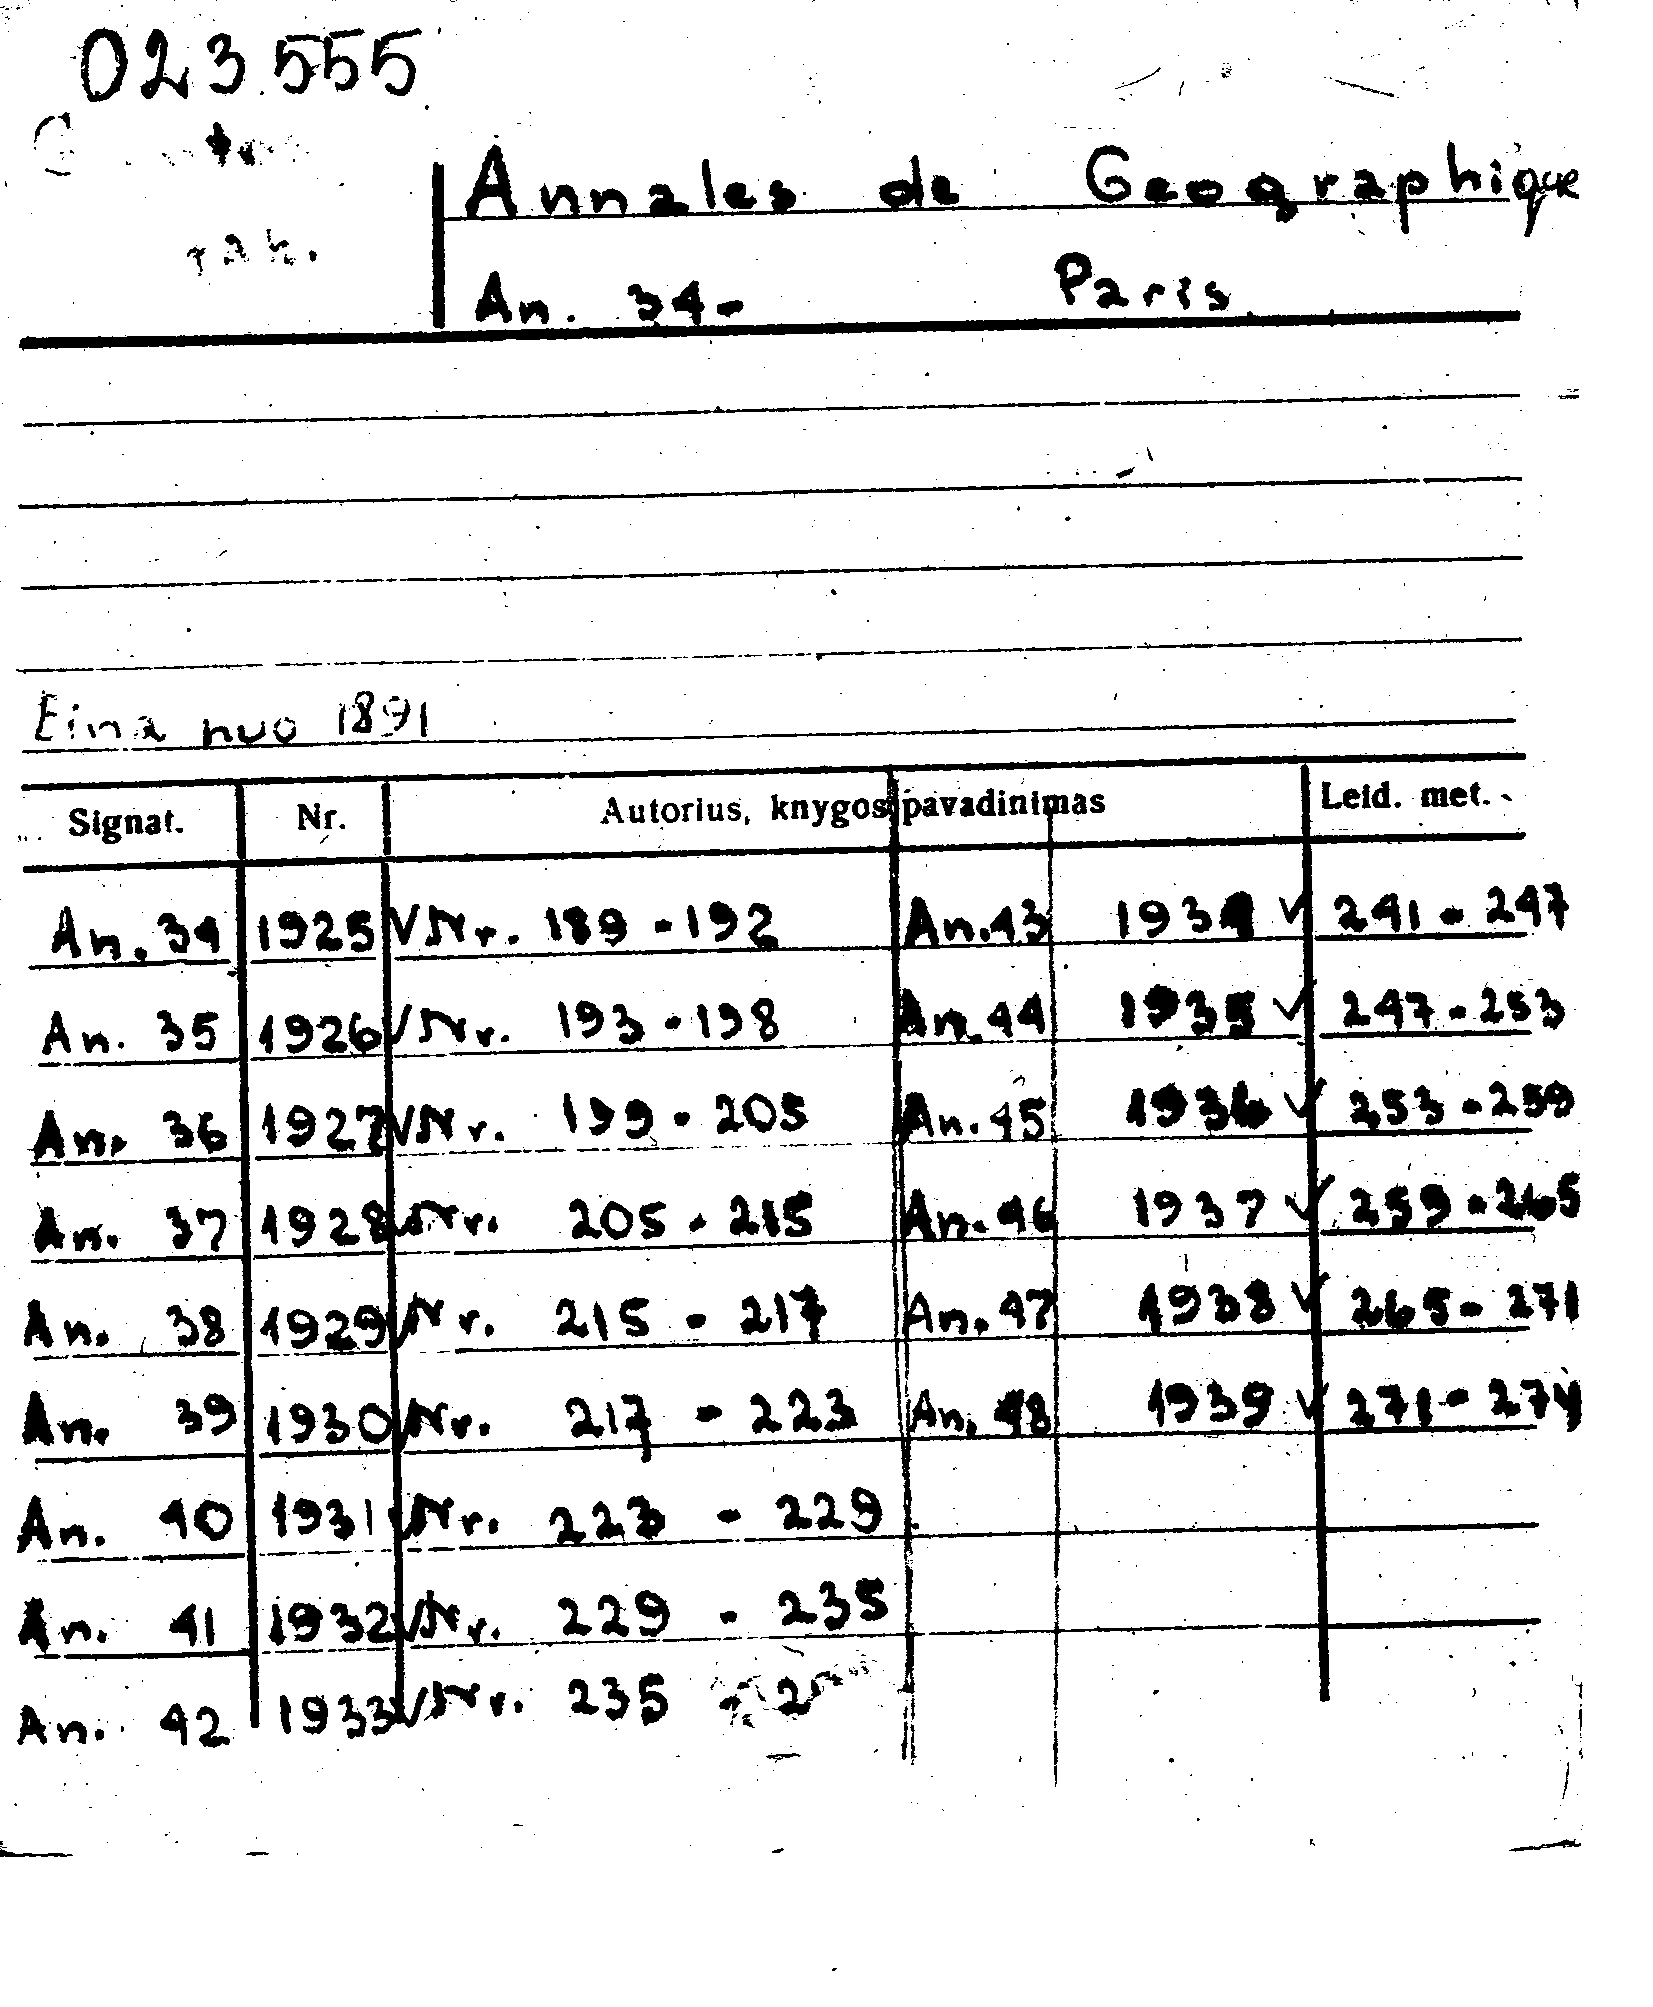 023.555
Annales de Geographique
rak.
An. 34- Paris
Eina nuo 1891
Signat. Nr. Autorius, knygos pavadinimas Leid. met.
An. 34 1925 V Nr. 189 - 192 An. 43 1934 V 241 - 247
An. 35 1926 V Nr. 193 - 198 An. 44 1935 V 247 - 253
An. 36 1927 V Nr. 199 - 205 An. 45 1936 V 253 - 259
An. 37 1928 V Nr. 205 - 215 An. 46 1937 V 259 - 265
An. 38 1929 V Nr. 215 - 217 An. 47 1938 V 265 - 271
An. 39 1930 V Nr. 217 - 223 An. 48 1939 V 271 - 274
An. 40 1931 V Nr. 223 - 229
An. 41 1932 V Nr. 229 - 235
An. 42 1933 V Nr. 235 -